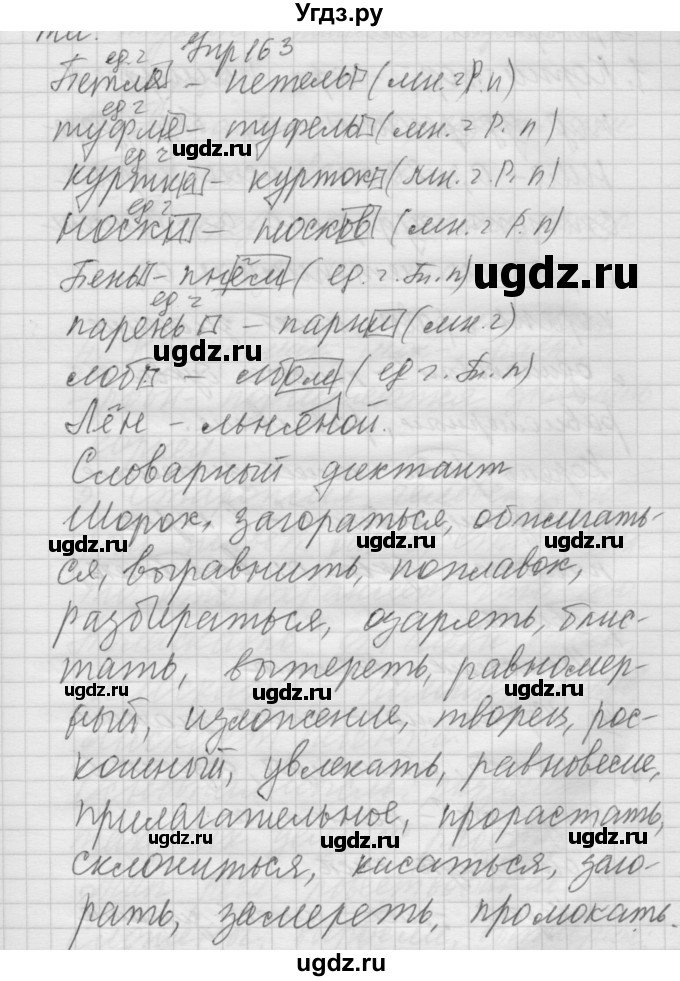 Угдз.ру
Упр 163
ед. ч
Петля – петель (мн. ч Р. п)
ед ч
туфле – туфель (мн. ч Р. п)
ugdz.ru
ед ч
куртка – курток (мн. ч Р. п)
ед ч
носки – носков (мн. ч Р. п)
Пень – пнём (ед. ч. Тв. п)
ugdz.ru
ед ч
парень – парни (мн. ч)
ugdz.ru
лоб – лбом (ед ч. Тв. п)
ugdz.ru
Лён – льняной.
Словарный диктант
Шорох, загораться, обжигать-
ugdz.ru ugdz.ru
ся, выравнить, поплавок,
разбираться, озарять, блис-
тать, вытереть, равномер-
ugdz.ru ugdz.ru ugdz.ru
ный, изложение, творец, рос-
кошный, увлекать, равновесие,
прилагательное, прорастать,
ugdz.ru ugdz.ru ugdz.ru
склониться, касаться, заго-
рать, замереть, промокать.
ugdz.ru